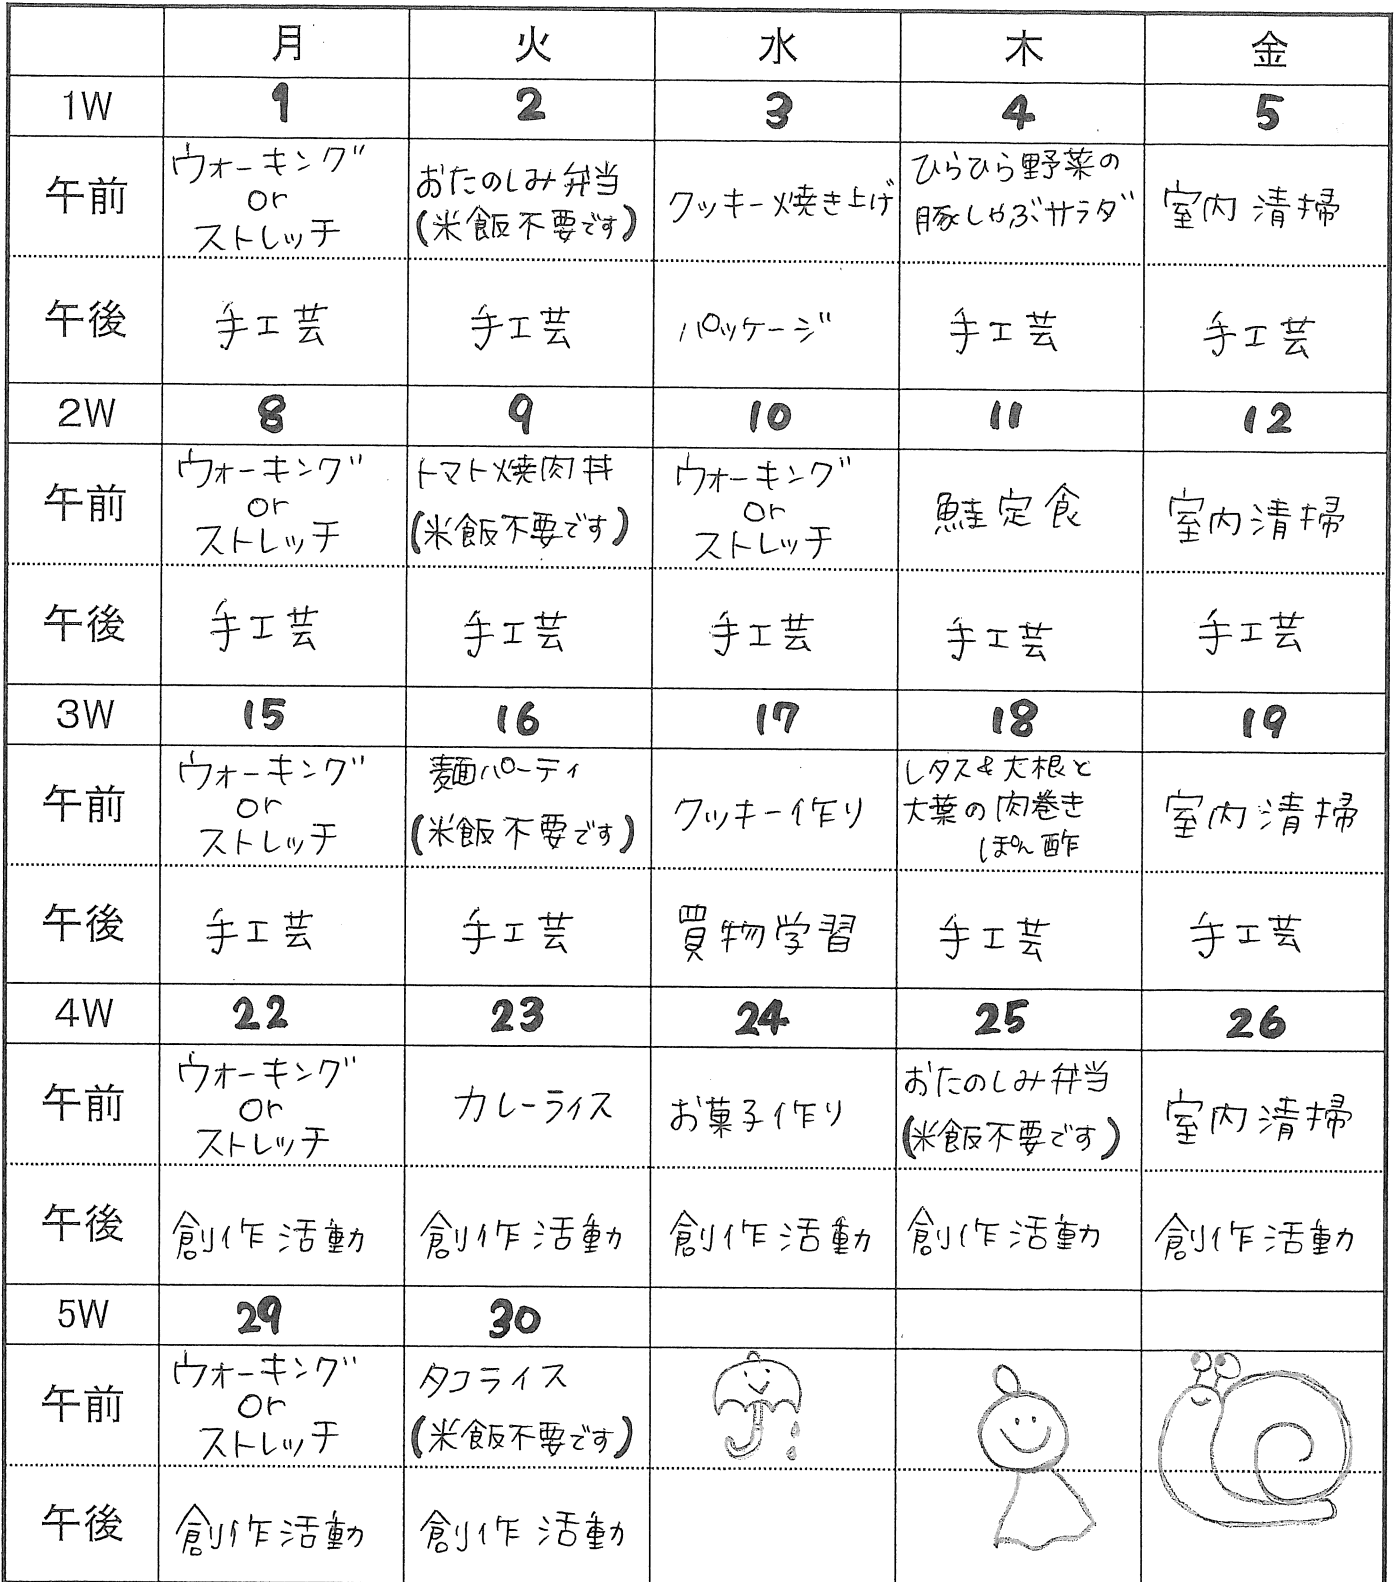 月 火 水 木 金
1W 1 2 3 4 5
午前
ウォーキング
or
ストレッチ
おたのしみ弁当
(米飯不要です)
クッキー焼き上げ
ひらひら野菜の
豚しゃぶサラダ
室内清掃
午後 手工芸 手工芸 パッケージ 手工芸 手工芸
2W 8 9 10 11 12
午前
ウォーキング
or
ストレッチ
トマト焼肉丼
(米飯不要です)
ウォーキング
or
ストレッチ
鮭定食
室内清掃
午後 手工芸 手工芸 手工芸 手工芸 手工芸
3W 15 16 17 18 19
午前
ウォーキング
or
ストレッチ
麺パーティ
(米飯不要です)
クッキー作り
レタス&大根と
大葉の肉巻き
ぽん酢
室内清掃
午後 手工芸 手工芸 買物学習 手工芸 手工芸
4W 22 23 24 25 26
午前
ウォーキング
or
ストレッチ
カレーライス
お菓子作り
おたのしみ弁当
(米飯不要です)
室内清掃
午後 創作活動 創作活動 創作活動 創作活動 創作活動
5W 29 30
午前
ウォーキング
or
ストレッチ
タコライス
(米飯不要です)
午後 創作活動 創作活動